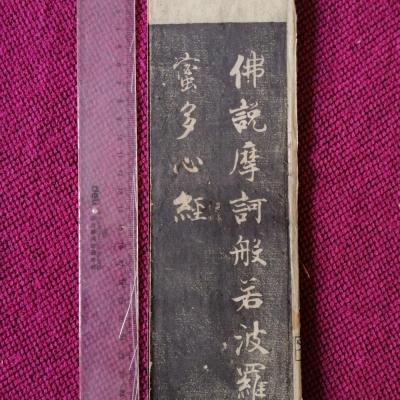 佛說摩訶般若波羅
蜜多心經